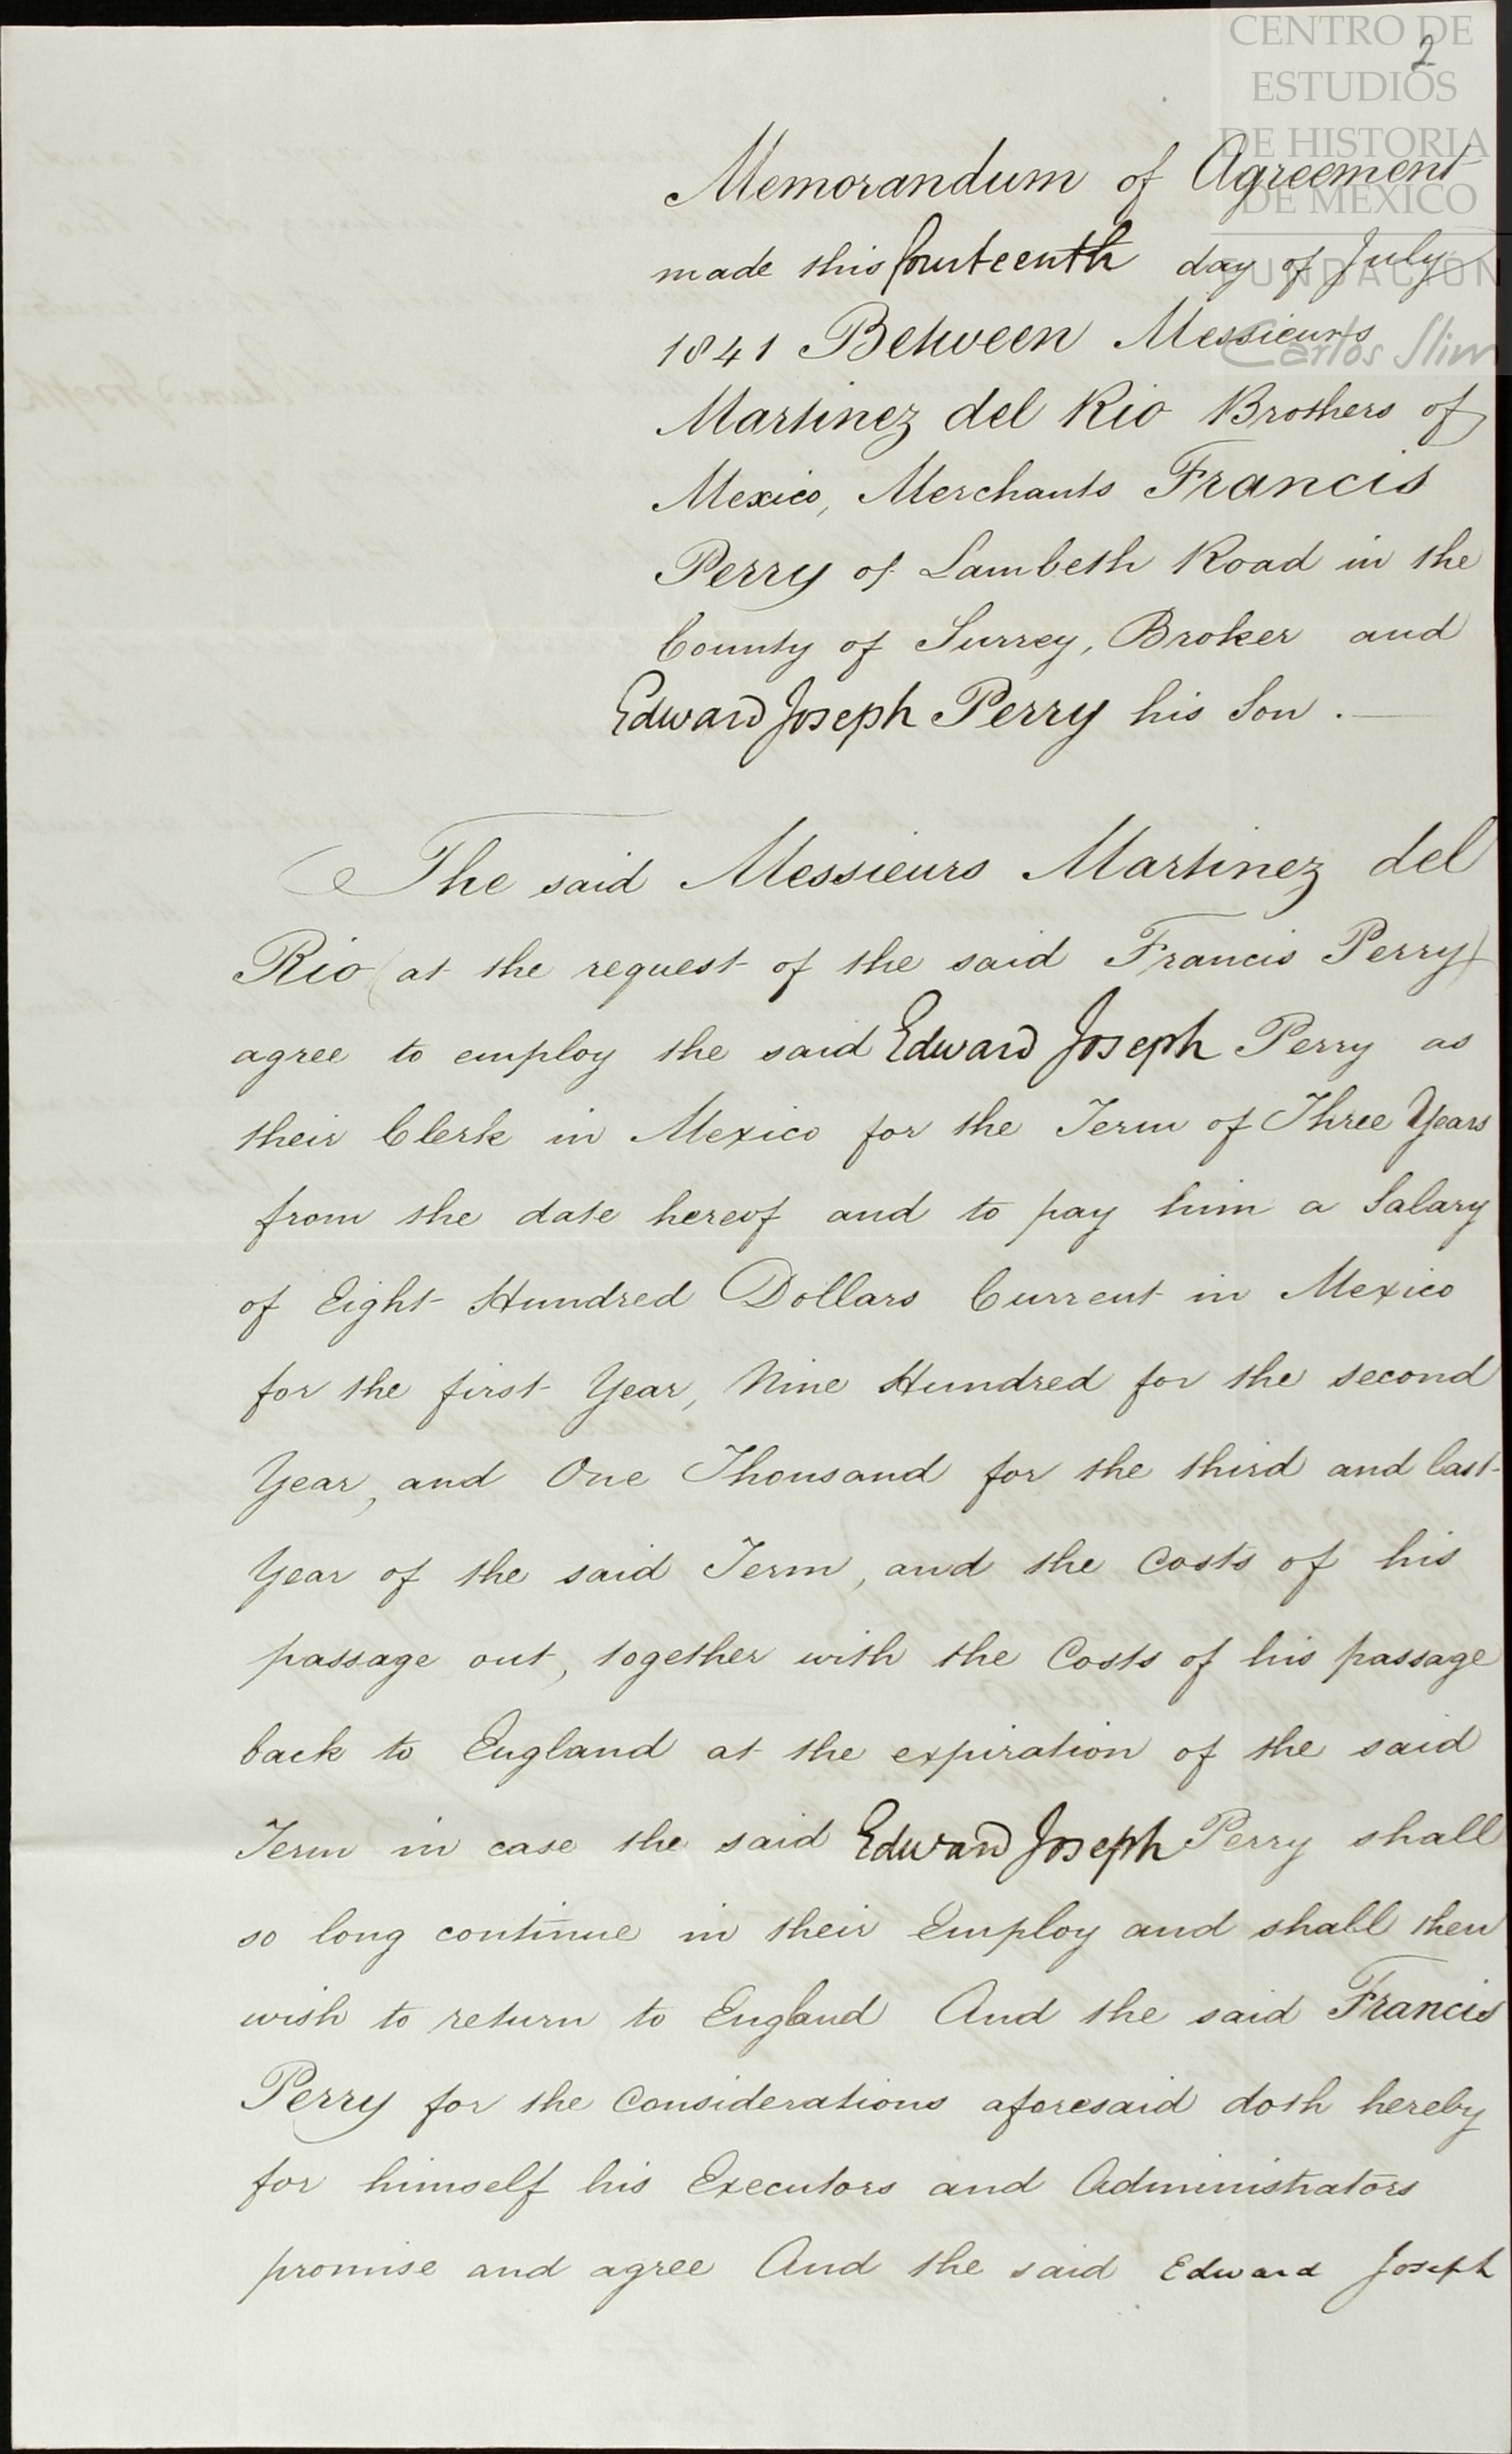 CENTRO DE
ESTUDIOS
DE HISTORIA
DE MÉXICO
FUNDACIÓN
Carlos Slim
2
Memorandum of Agreement
made this fourteenth day of July
1841 Between Messieurs
Martinez del Rio Brothers of
Mexico, Merchants Francis
Perry of Lambeth Road in the
County of Surrey, Broker and
Edward Joseph Perry his Son .—
The said Messieurs Martinez del
Rio (at the request of the said Francis Perry)
agree to employ the said Edward Joseph Perry as
their Clerk in Mexico for the Term of Three Years
from the date hereof and to pay him a Salary
of Eight Hundred Dollars Current in Mexico
for the first Year, Nine Hundred for the second
Year, and One Thousand for the third and last
Year of the said Term, and the Costs of his
passage out, together with the Costs of his passage
back to England at the expiration of the said
Term in case the said Edward Joseph Perry shall
so long continue in their Employ and shall then
wish to return to England And the said Francis
Perry for the Considerations aforesaid doth hereby
for himself his Executors and Administrators
promise and agree And the said Edward Joseph